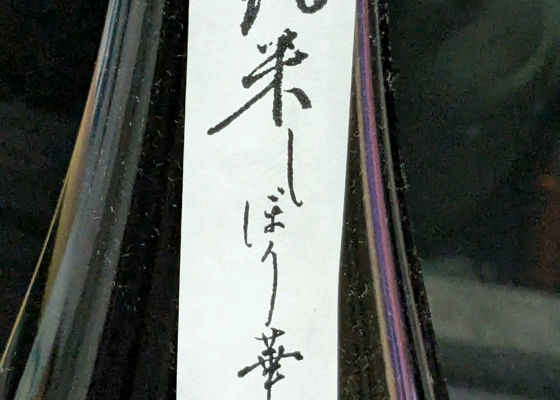 米しぼり華